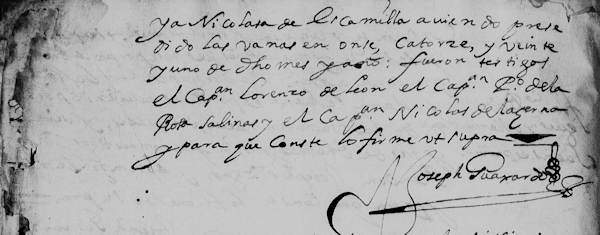 ya Nicolasa de Escamilla aviendo prese
dido las vanas en onse, Catorze, y veinte
y uno de dho mes y año: fueron testigos
el Cap.an Lorenzo de leon el Cap.an P.o de la
Rota Salinas y el Cap.an Nicolas de lazerna
y para que Conste lo firme Vt supra
Joseph Guaxardo